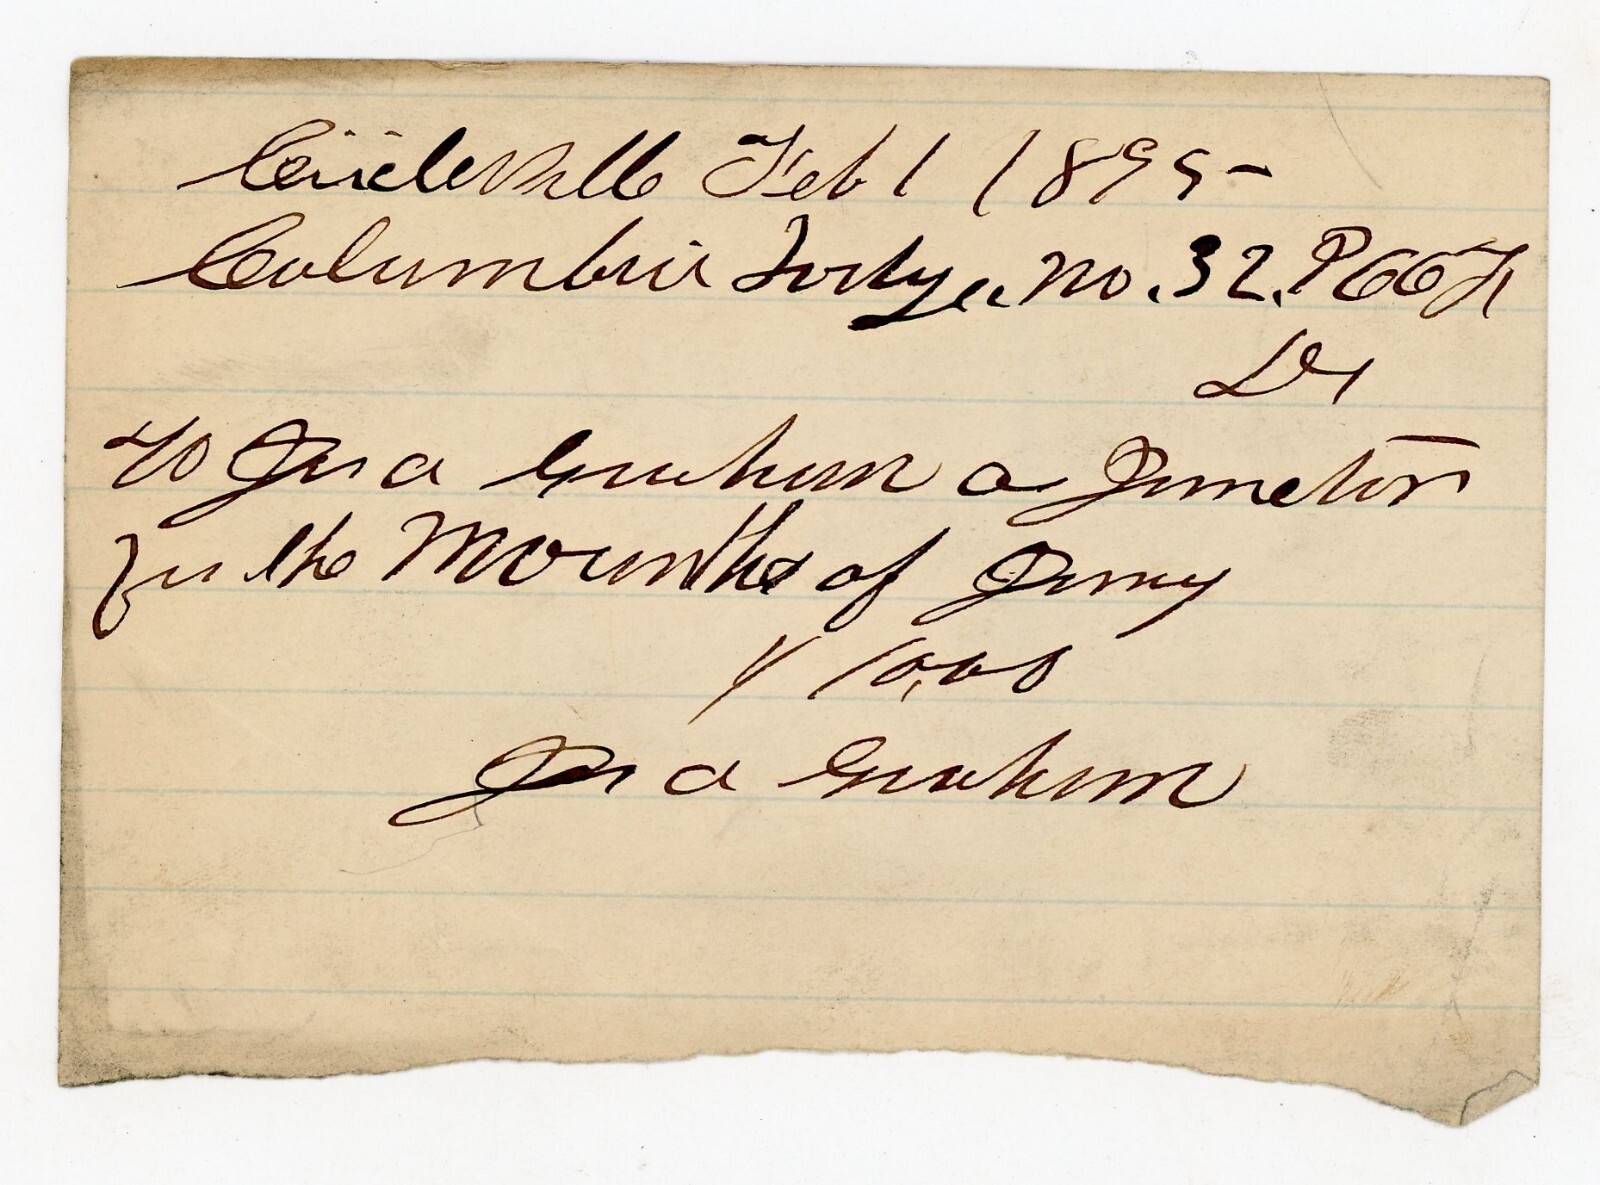 Circleville Feb 1 1895-
Columbia Lodge No. 32. P OO F
Dr
To Jas a Graham a Janetor
for the Mounths of Jany
$ 10.00
Jas a Graham